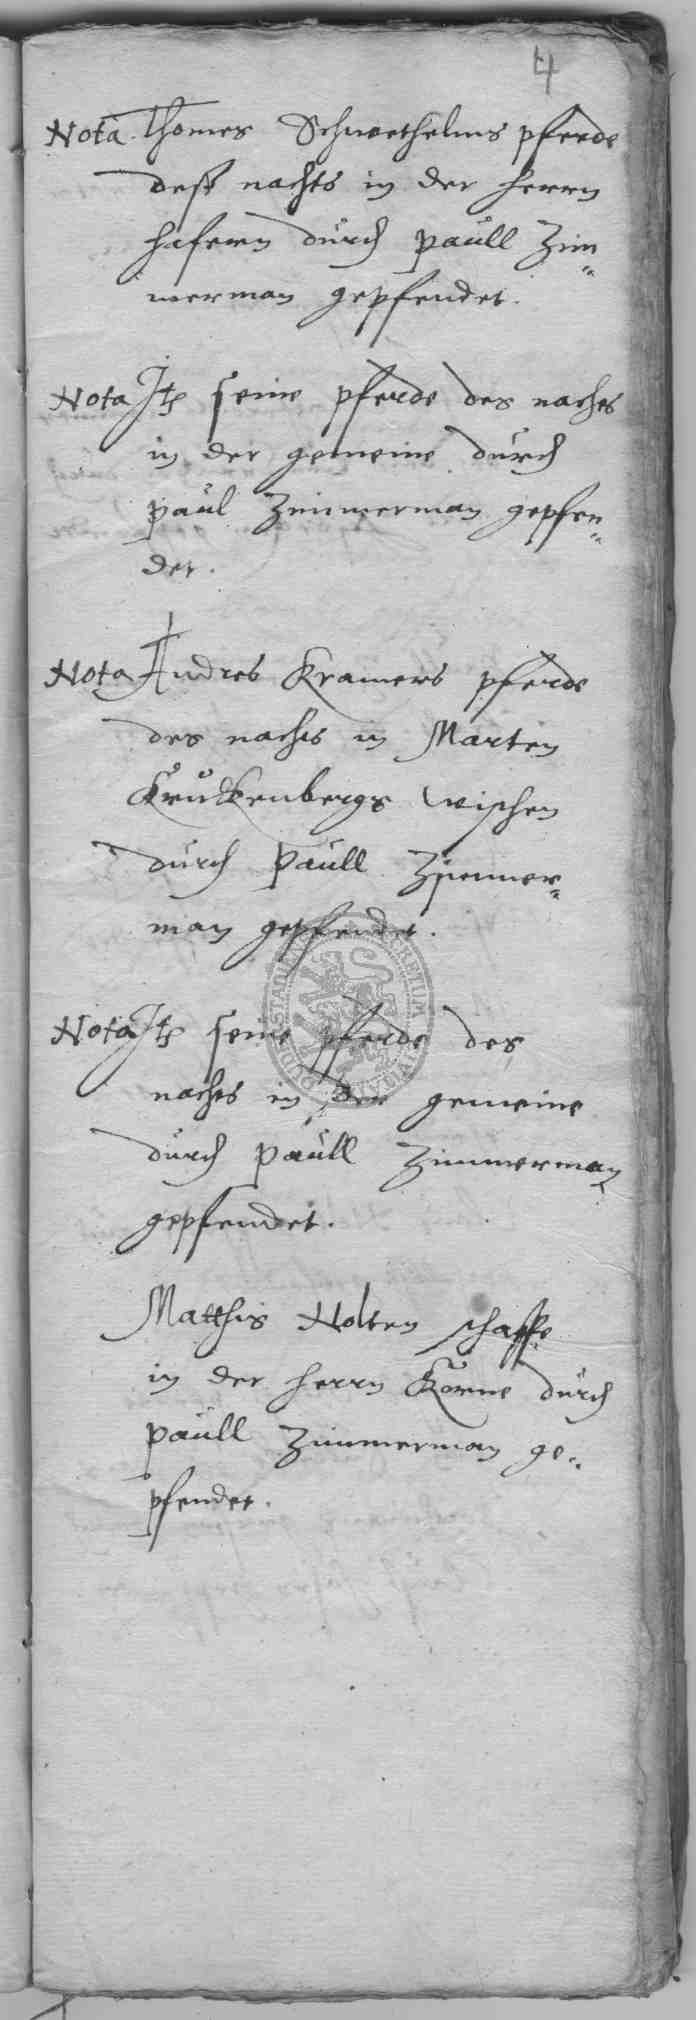 4
Nota Thomes Schwethelms pferde
deß nachts in der Herrn
hafern durch paull Zim=
merman gepfendet.
Nota Itz seine pferde des nachts
in der gemeine durch
paul Zimmerman gepfen=
det.
Nota Andres Kramers pferde
des nachts in Marten
Kruckenbergs wischen
durch paull Zimmer=
man gepfendet.
Nota Itz seine pferde des
nachts in der gemeine
durch paull Zimmerman
gepfendet.
Matthis Holten schaffe
in der Herrn Korne durch
paull Zimmerman ge=
pfendet.